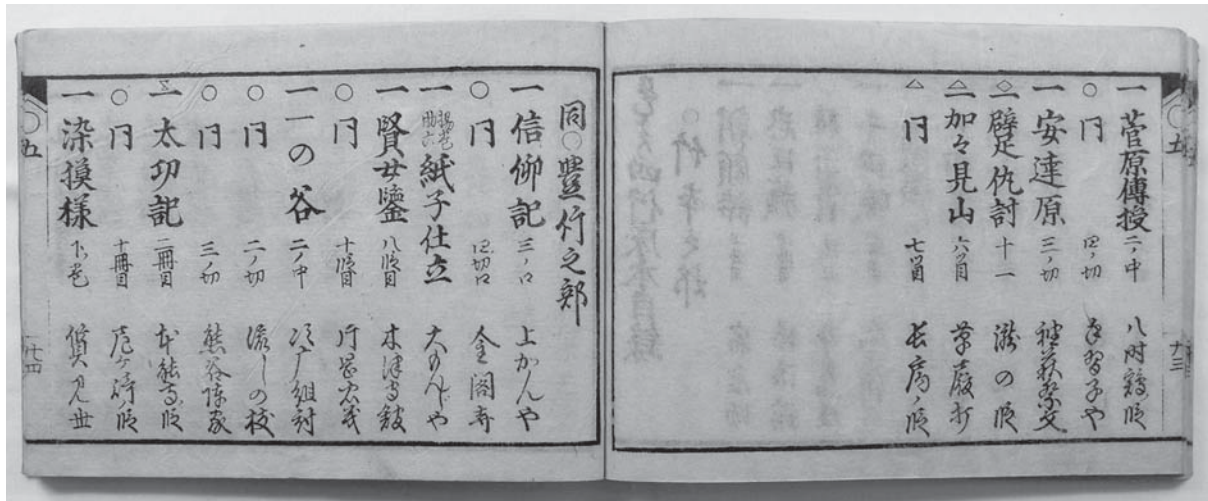 一 菅原傳授 二ノ中 八時鶏ノ段
○ 同 四ノ切 手習子や
一 安達原 三ノ切 袖萩祭文
一 躄仇討 十一 瀧の段
一 加々見山 六ツ目 草履打
△ 同 七ツ目 長局ノ段
五
同○豊竹之部
一 信仰記 三ノ口 上かんや
○ 同 四ノ切口 金閣寺
一 揚巻助六 紙子仕立 大もんじや
一 賢女鑑 八段目
○ 同 十段目 片岡忠義
一 一の谷 二ノ中 組討
○ 同 二ノ切 流しの枝
○ 同 三ノ切 熊谷陳家
一 太功記 二冊目 本能寺ノ段
○ 同 十冊目 尼ヶ崎ノ段
一 染摸様 下ノ巻
五
廿四